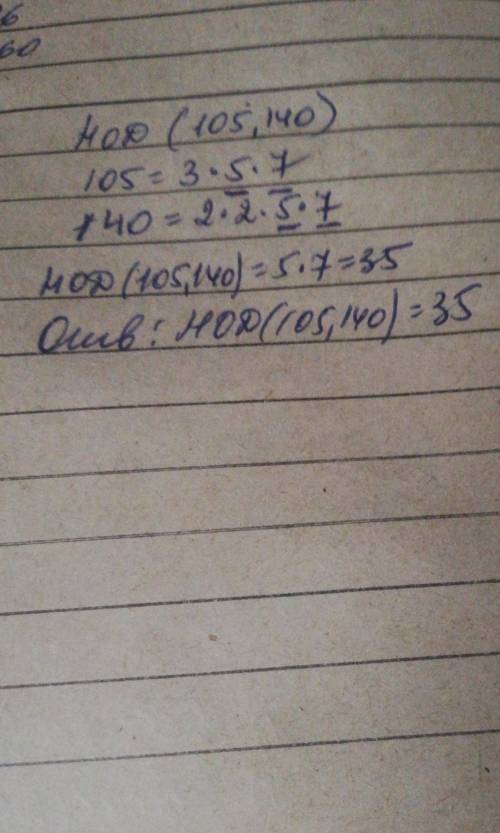 26
60
НОД (105, 140)
105 = 3 · 5 · 7
140 = 2 · 2 · 5 · 7
НОД (105, 140) = 5 · 7 = 35
Отв: НОД (105, 140) = 35